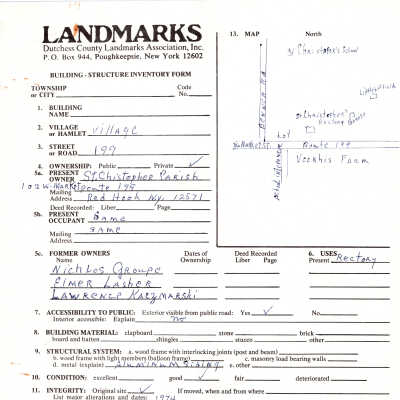 LANDMARKS
Dutchess County Landmarks Association, Inc.
P. O. Box 944, Poughkeepsie, New York 12602
BUILDING - STRUCTURE INVENTORY FORM
TOWNSHIP
or CITY
Code
No.
1. BUILDING
NAME
2. VILLAGE
or HAMLET village
3. STREET
or ROAD 199
4. OWNERSHIP: Public Private ✓
5a. PRESENT
OWNER St. Chistopher Parish
102 W. Market Route 199
Mailing
Address Red Hook Ny. 12571
Deed Recorded: Liber Page
5b. PRESENT
OCCUPANT Same
Mailing same
Address
13. MAP North
St Christopher's School
St Christopher's
Rectory
Lot
Route 199
Veekhis Farm
5c. FORMER OWNERS
Name
Dates of
Ownership
Deed Recorded
Liber Page
6. USES
Present Rectory
Nichlos Groupe
Elmer Lasher
Lawrence Katzmarski
7. ACCESSIBILITY TO PUBLIC: Exterior visible from public road: Yes ✓ No
Interior accessible: Explain no
8. BUILDING MATERIAL: clapboard stone brick
board and batten shingles stucco other
9. STRUCTURAL SYSTEM: a. wood frame with interlocking joints (post and beam)
b. wood frame with light members (balloon frame) c. masonry load bearing walls
d. metal (explain) aluminum siding e. other
10. CONDITION: excellent good ✓ fair deteriorated
11. INTEGRITY: Original site ✓ If moved, when and from where
List major alterations and dates: 1974